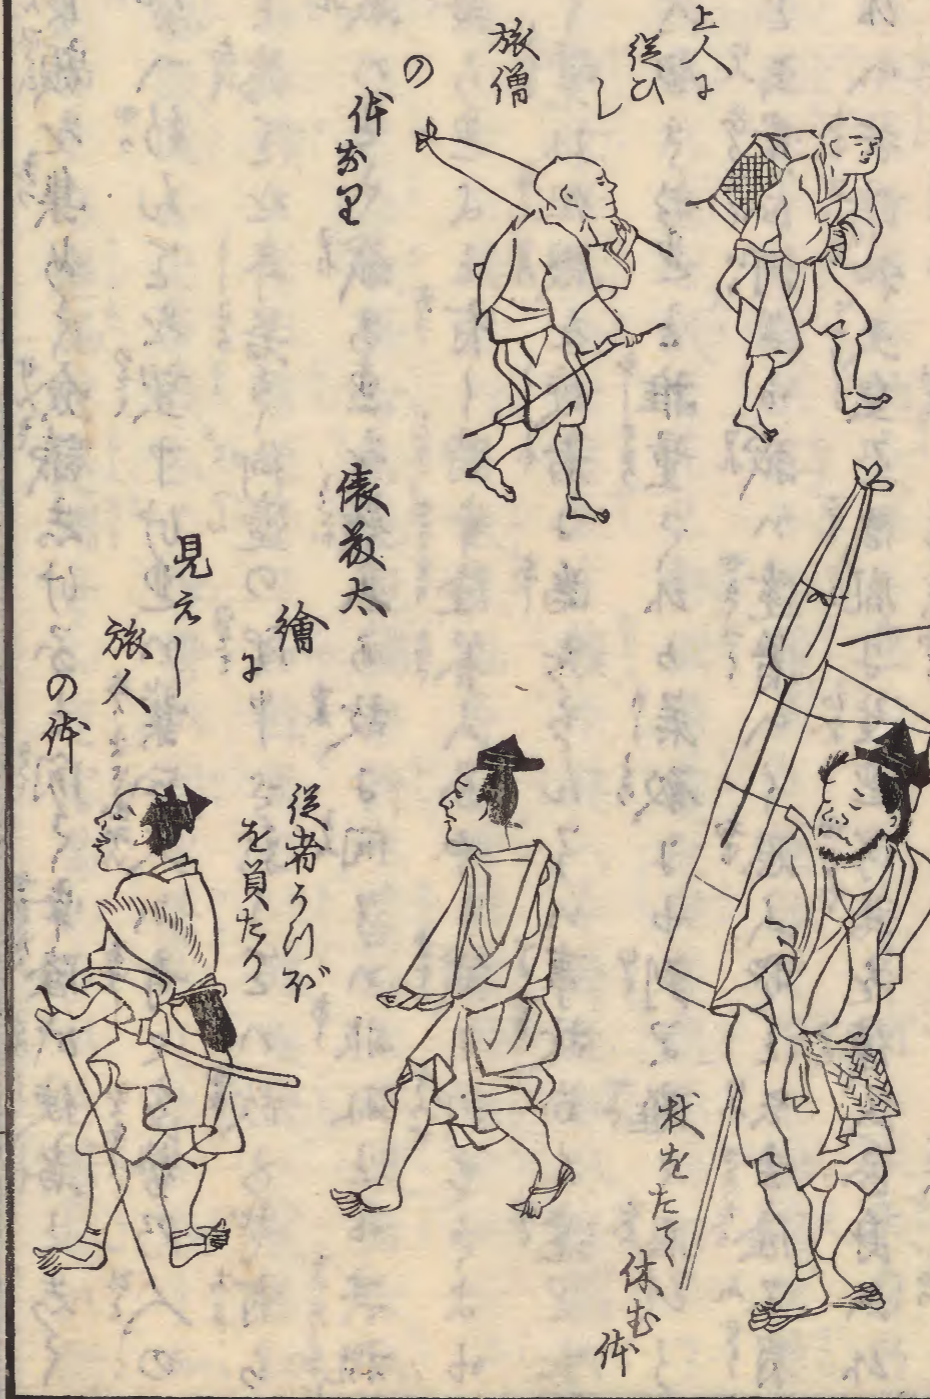 上人に
従ひ
し
旅僧
の
体なり
俵藤太
繪
に
見えし
旅人
の体
従者うつぼ
を負たり
杖をたてゝ
休む
体